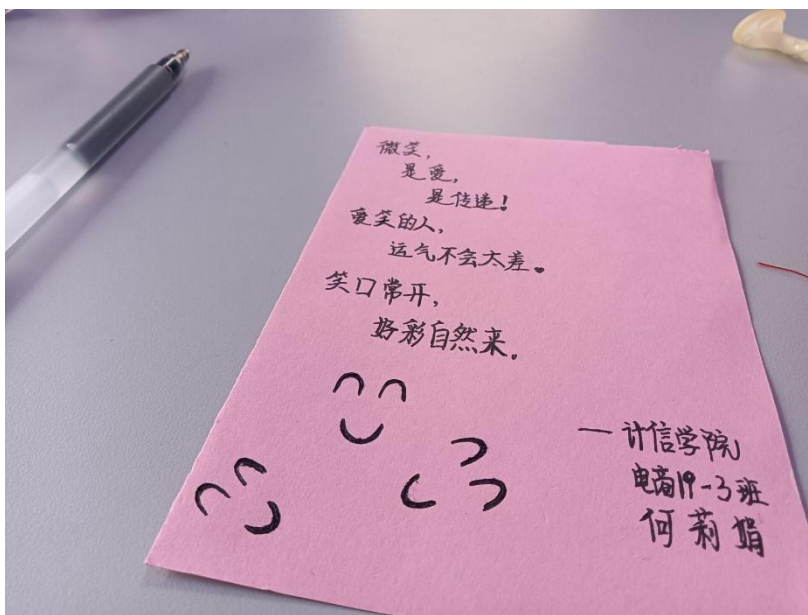 微笑，
是爱，
是传递！
爱笑的人，
运气不会太差。
笑口常开，
好彩自然来。
一计信学院
电商19-3班
何莉娟